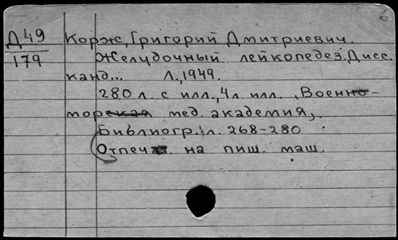 Д49
179
Корж, Григорий Дмитриевич.
Желудочный лейкопедез. Дисс.
канд... Л., 1949.
280 л. с илл., 4 л. илл. (Военно-
морская мед. академия).
Библиогр.: л. 268-280
Отпеч. на пиш. маш.